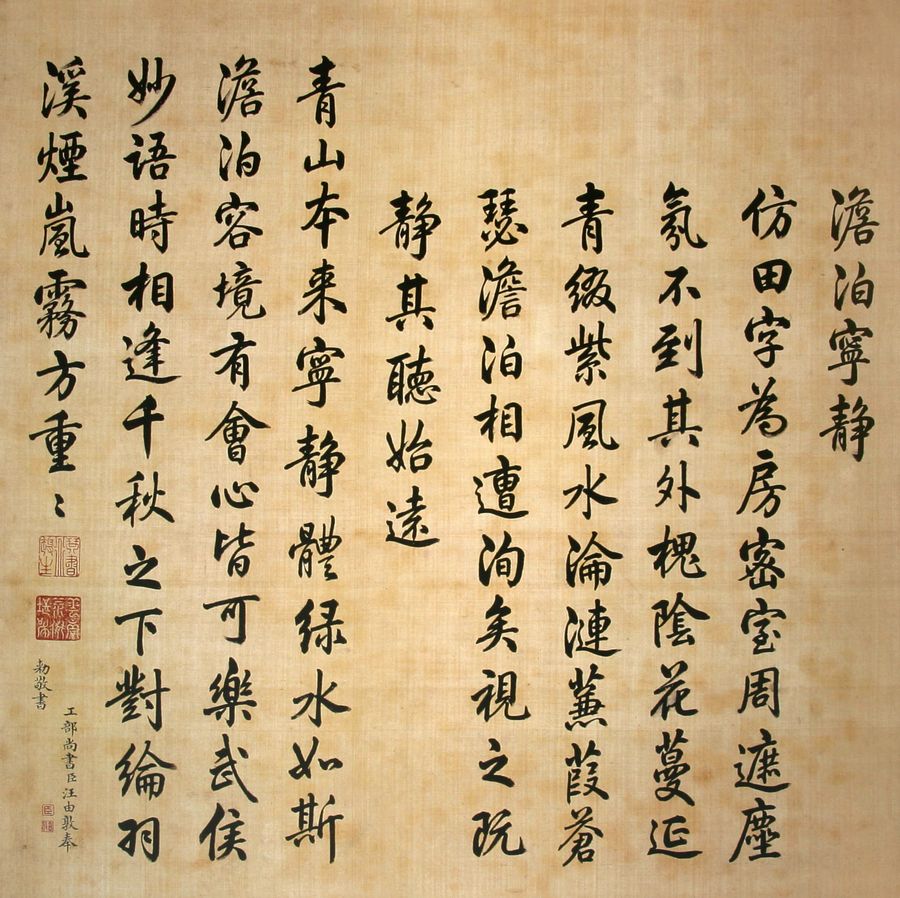 澹泊寧静
仿田字為房密室周遮塵
氛不到其外槐陰花蔓延
青綴紫風水淪漣蒹葭蒼
瑟澹泊相遭洵矣視之既
静其聽始遠
青山本来寧静體緑水如斯
澹泊容境有會心皆可樂武侯
妙語時相逢千秋之下對綸羽
溪煙嵐霧方重〻
工部尚書臣汪由敦奉
勅敬書